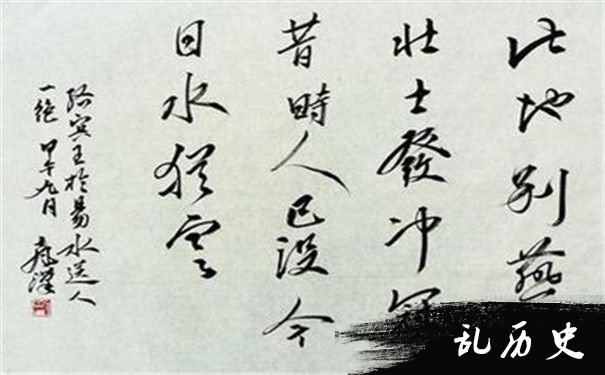 此地别燕
壮士發冲冠
昔時人已没今
日水猶寒
骆宾王於易水送人
一绝 甲午九月
乱历史